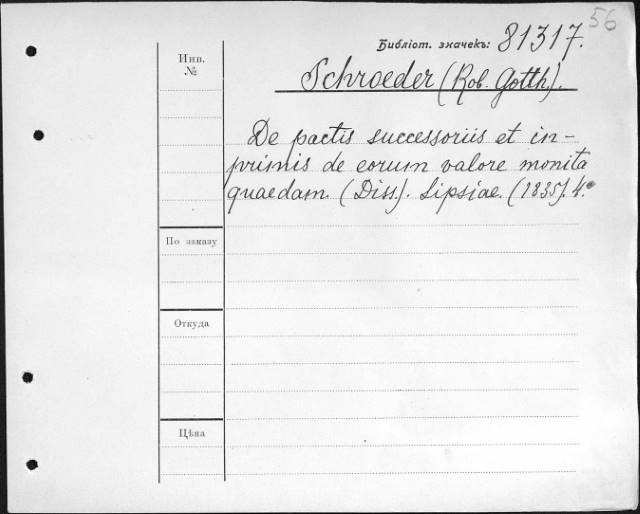 56
Библіот. значекъ: 81317.
Инв.
№
Schroeder (Rob. Gotth.).
De pactis successoriis et in-
primis de eorum valore monita
quaedam. (Diss.). Lipsiae. (1835). 4.°
По заказу
Откуда
Цѣна